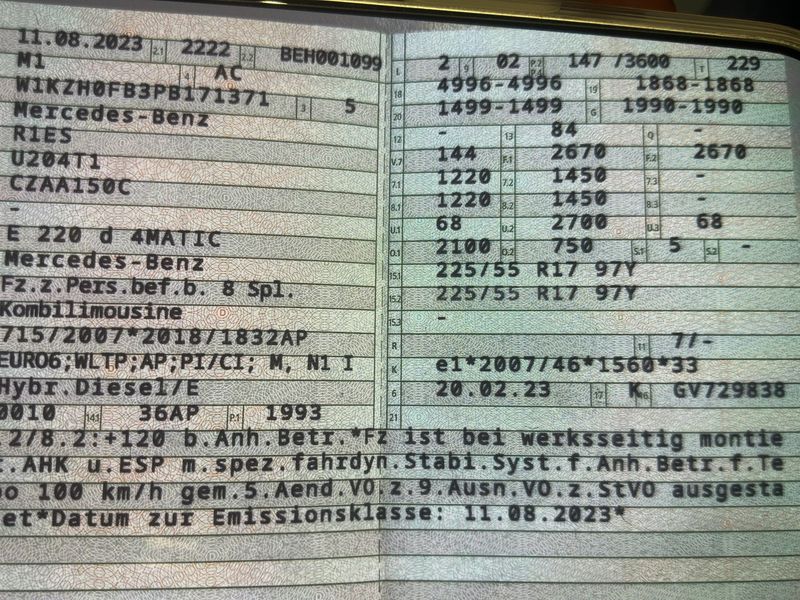 11.08.2023 2.1 2222 2.2 BEH001099
M1 4 AC
W1KZH0FB3PB171371 3 5
Mercedes-Benz
R1ES
U204T1
CZAA150C
-
E 220 d 4MATIC
Mercedes-Benz
Fz.z.Pers.bef.b. 8 Spl.
Kombilimousine
715/2007*2018/1832AP
EURO6;WLTP;AP;PI/CI; M, N1 I
Hybr.Diesel/E
0010 14.1 36AP P.1 1993
L 2 9 02 P.2 P.4 147 /3600 T 229
18 4996-4996 19 1868-1868
20 1499-1499 G 1990-1990
12 - 13 84 Q -
V.7 144 F.1 2670 F.2 2670
7.1 1220 7.2 1450 7.3 -
8.1 1220 8.2 1450 8.3 -
U.1 68 U.2 2700 U.3 68
O.1 2100 O.2 750 S.1 5 S.2 -
15.1 225/55 R17 97Y
15.2 225/55 R17 97Y
15.3 -
R 11 7/-
K e1*2007/46*1560*33
6 20.02.23 17 K 16 GV729838
21
.2/8.2:+120 b.Anh.Betr.*Fz ist bei werksseitig montie
.AHK u.ESP m.spez.fahrdyn.Stabi.Syst.f.Anh.Betr.f.Te
po 100 km/h gem.5.Aend.VO.z.9.Ausn.VO.z.StVO ausgesta
et*Datum zur Emissionsklasse: 11.08.2023*